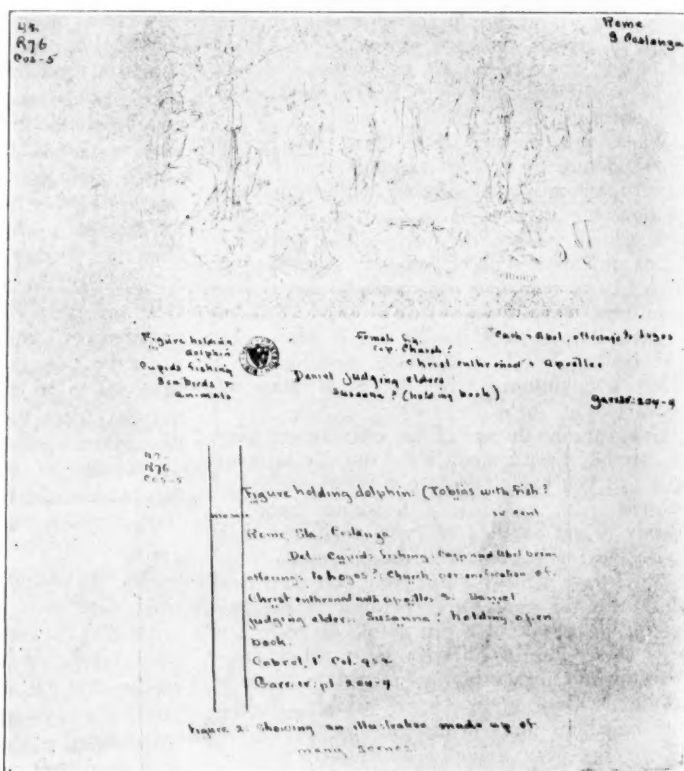 47.
R76
Cos-5
Rome
S Costanza
Figure holding
dolphin
Cupids fishing
Sea birds
animals
Female fig.
Church?
Christ enthroned + apostles
Daniel judging elders
Susanna? (holding book)
Cain + Abel, offerings to Logos
Garr. III. 204-9
47.
R76
Cos-5
Figure holding dolphin. (Tobias with Fish?
mosaic
IV cent.
Rome, Sta. Costanza
Det. Cupids fishing. Cain and Abel
offerings to Logos? Church, personification of.
Christ enthroned with apostles Daniel
judging elders. Susanna? holding open
book.
Cabrol, Col.
Garr. IV. pl. 204-9
Figure 2: Showing an illustration made up of
many scenes